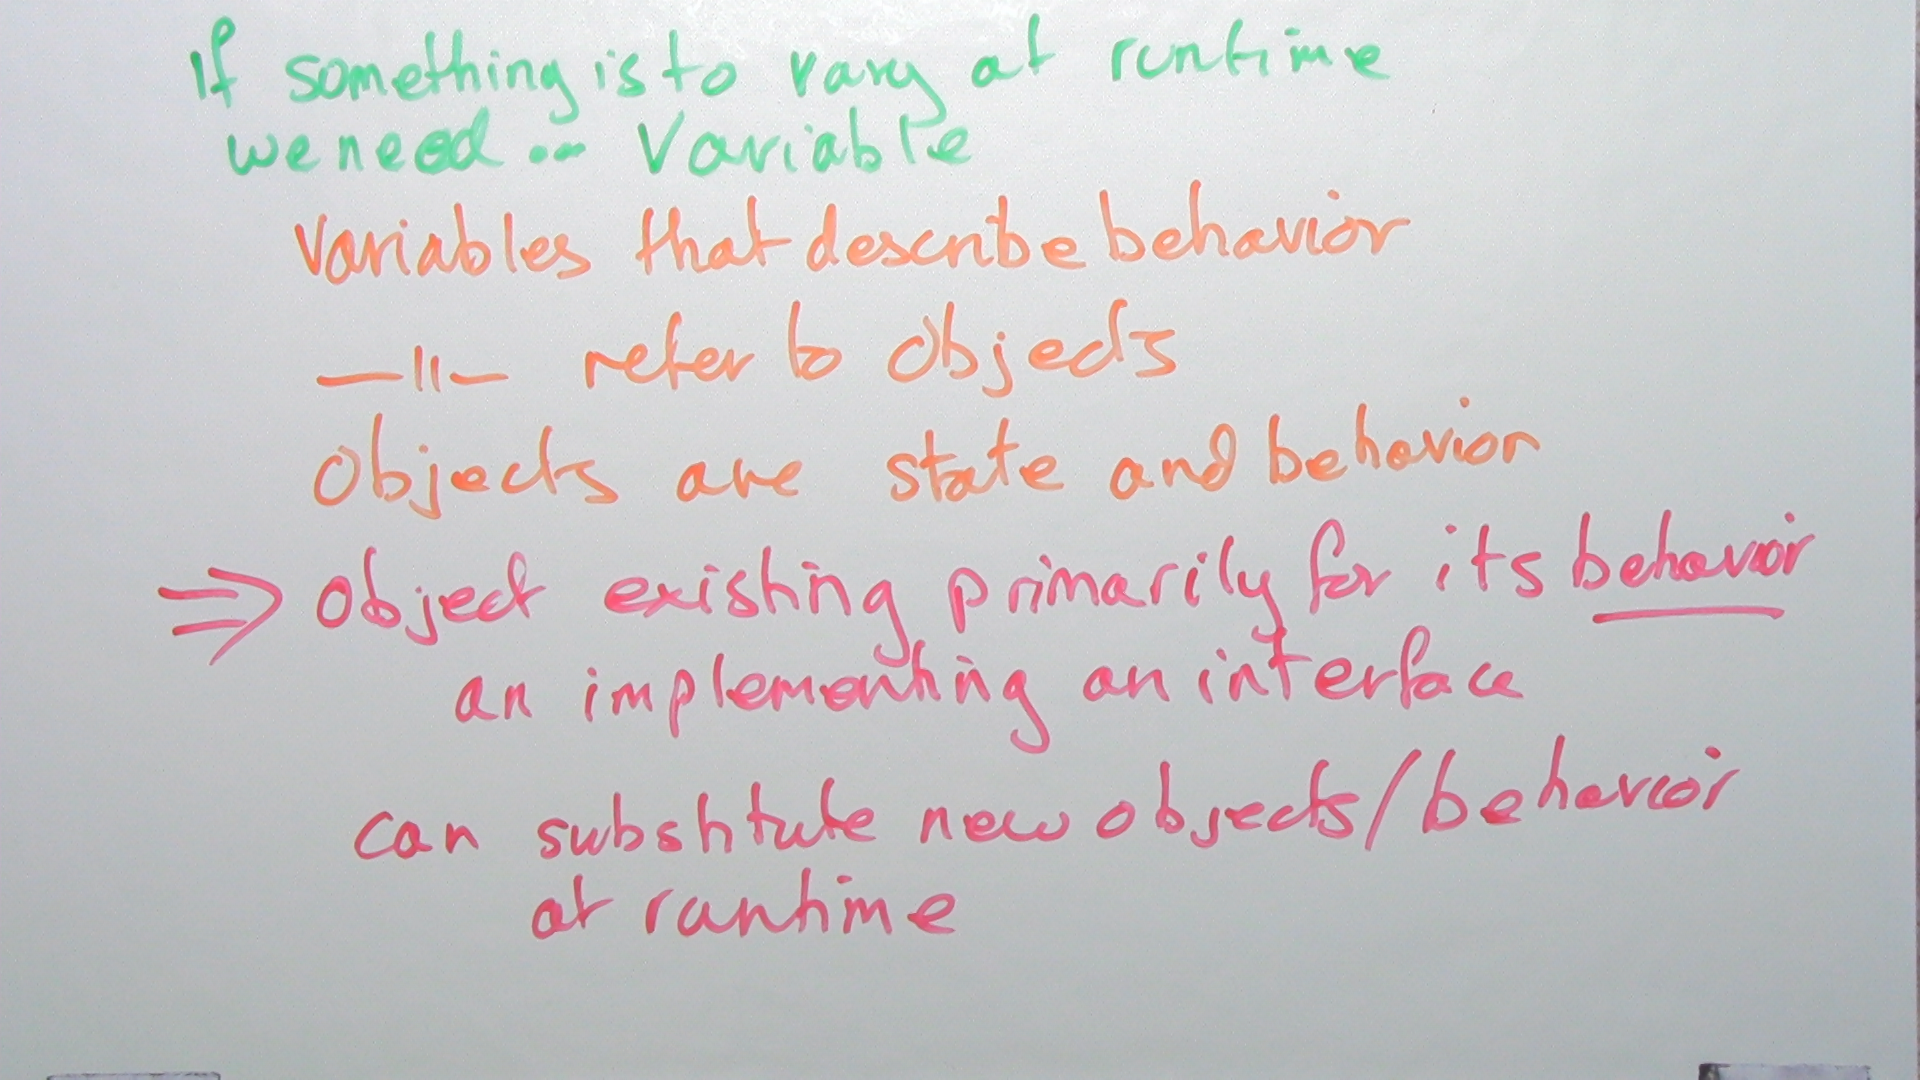 If something is to vary at runtime
we need ... Variable
Variables that describe behavior
—"— refer to objects
Objects are state and behavior
⇒ Object existing primarily for its behavior
an implementing an interface
can substitute new objects/behavior
at runtime